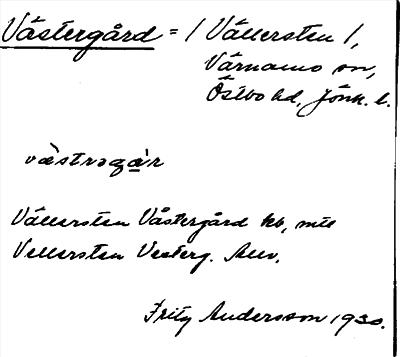 Västergård = / Vällersten /,
Värnamo sn,
Östbo hd, Jönk. l.
västrəgàr
Vällersten Västergård kb, mtl
Vellersten Vesterg.
Fritz Andersson 1930.